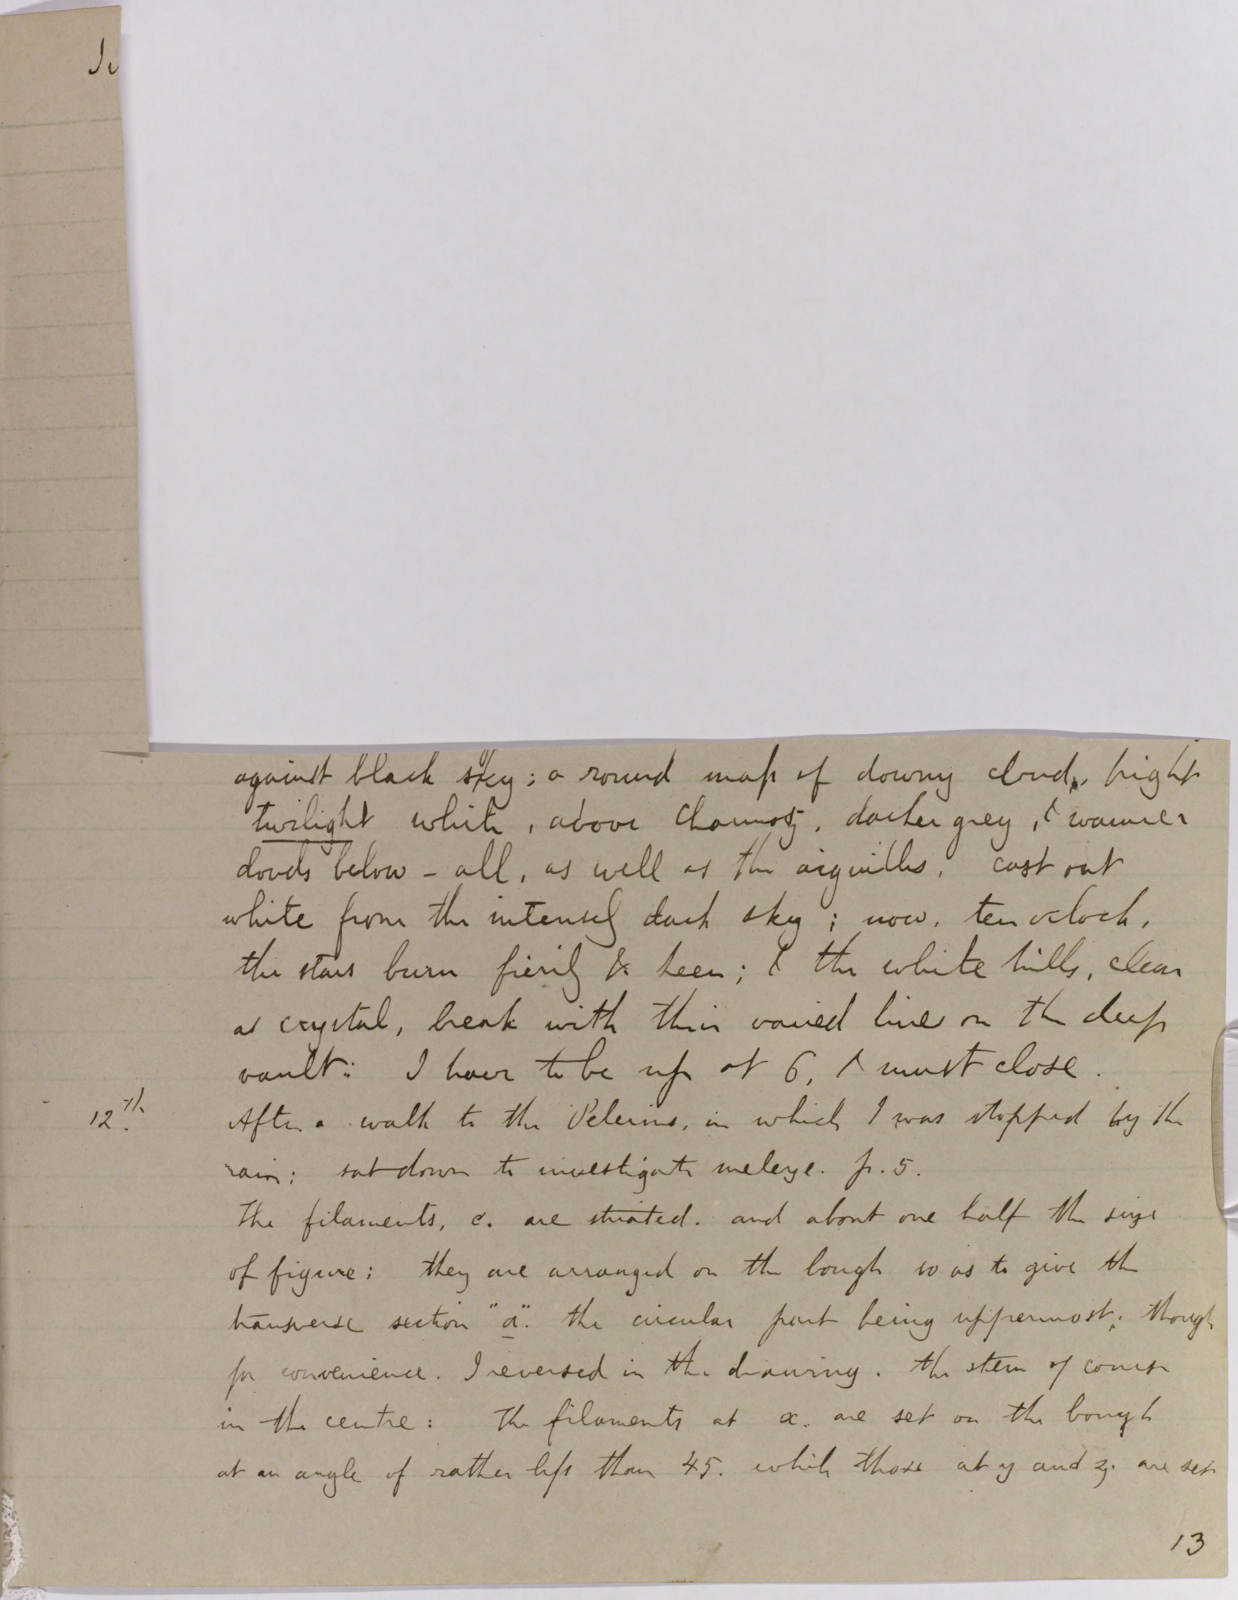 Ju
against black sky; a round mass of downy cloud, bright
twilight white, above Chamonj, darker grey, & warmer
clouds below - all, as well as the aiguilles, cast out
white from the intensely dark sky; now, ten oclock,
the stars burn fierily & keen; & the white hills, clear
as crystal, break with their varied lines on the deep
vault: I have to be up at 6, & must close.
12th. After a walk to the Pelerins, in which I was stopped by the
rain; sat down to investigate meleze. p. 5.
The filaments, c. are striated. and about one half the size
of figure; they are arranged on the bough so as to give the
transverse section "a". the circular part being uppermost; though
for convenience. I reversed in the drawing. the stem of course
in the centre: The filaments at x. are set on the bough
at an angle of rather less than 45. while those at y and z. are set
13